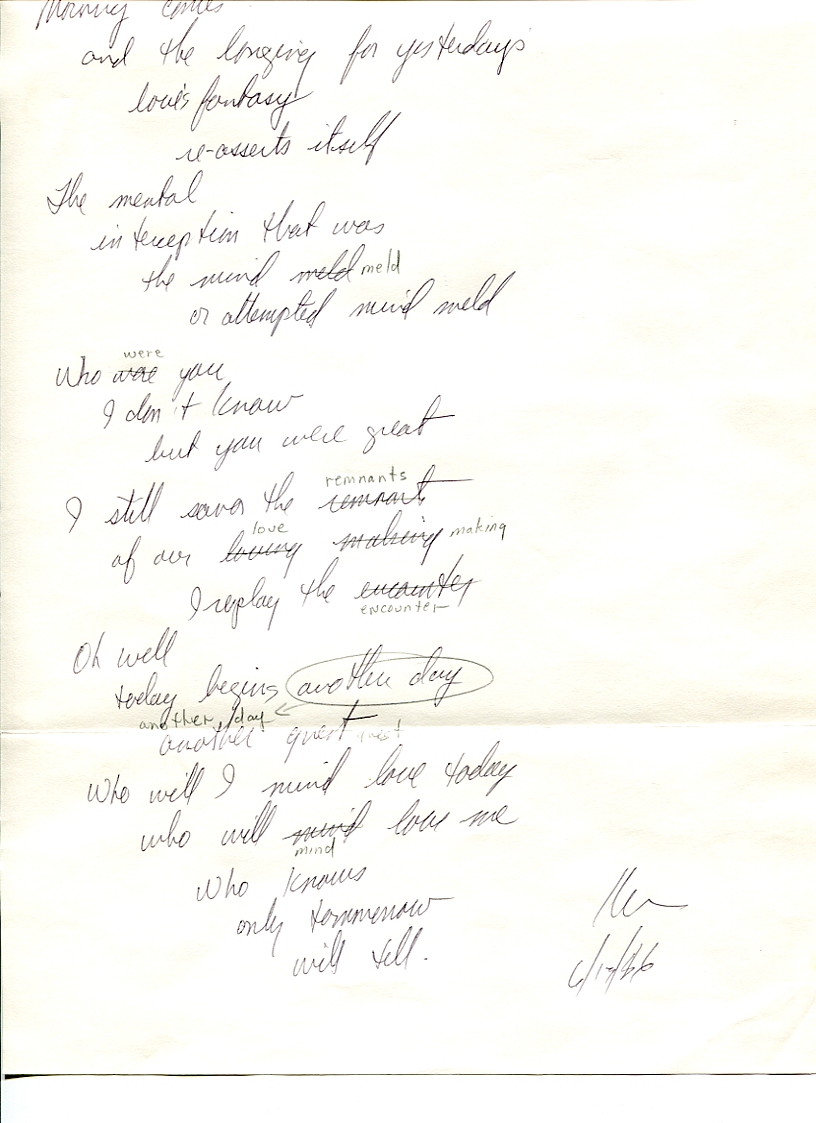 Morning comes
and the longing for yesterdays
love's fantasy
re-asserts itself
The mental
inteception that was
the mind meld meld
or attempted mind meld
were
Who were you
I don't know
but you were great
remnants
I still savor the remnant
love
of our loving making making
I replay the encounter
encounter
Oh well
today begins another day
another, day
another quest quest
Who will I mind love today
who will mind love me
mind
Who knows
only tommorrow
will tell.